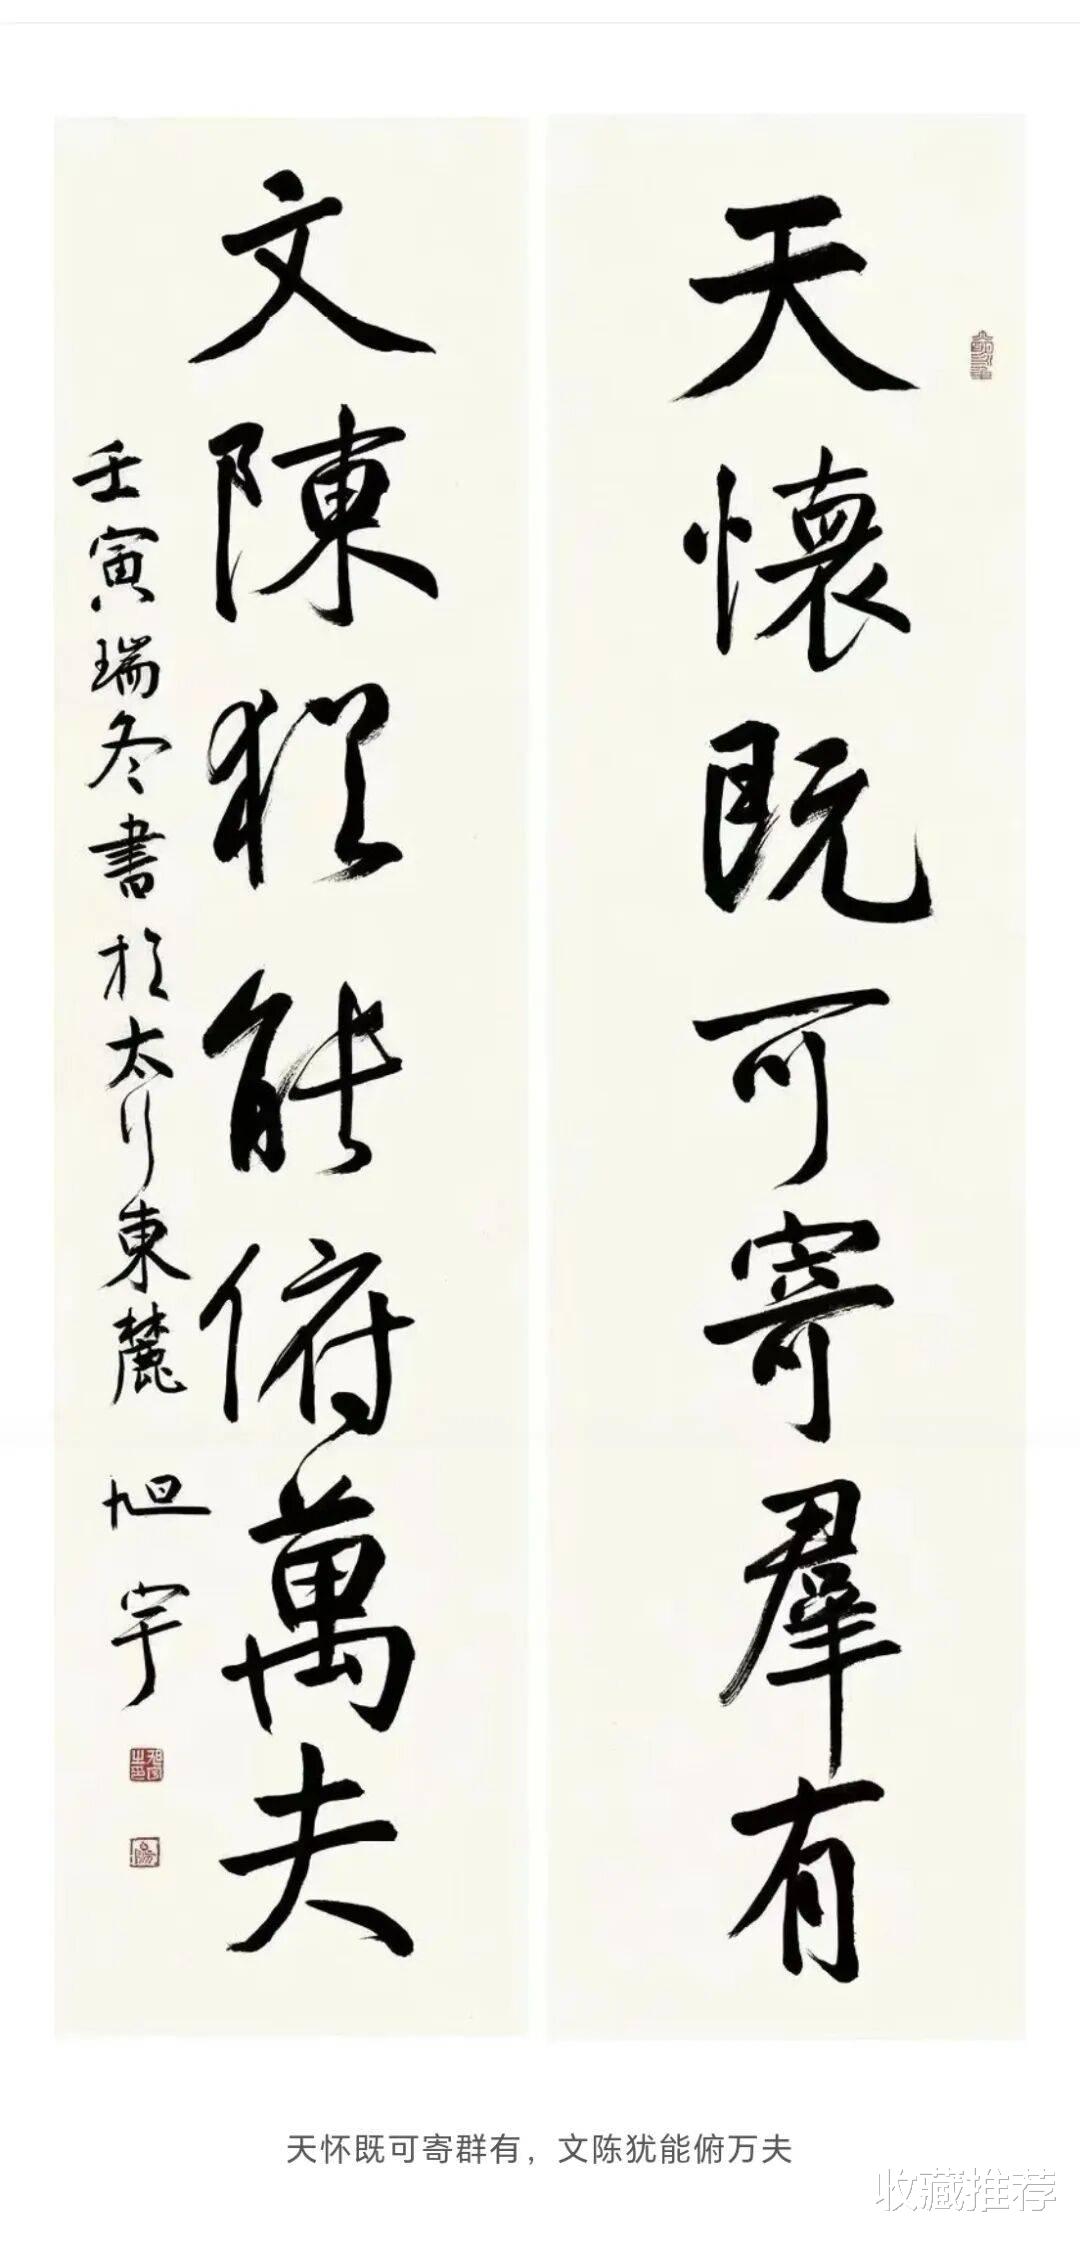 天懷既可寄羣有
文陳猶能俯萬夫
壬寅瑞冬書於太行東麓 旭宇
天怀既可寄群有，文陈犹能俯万夫
收藏推荐